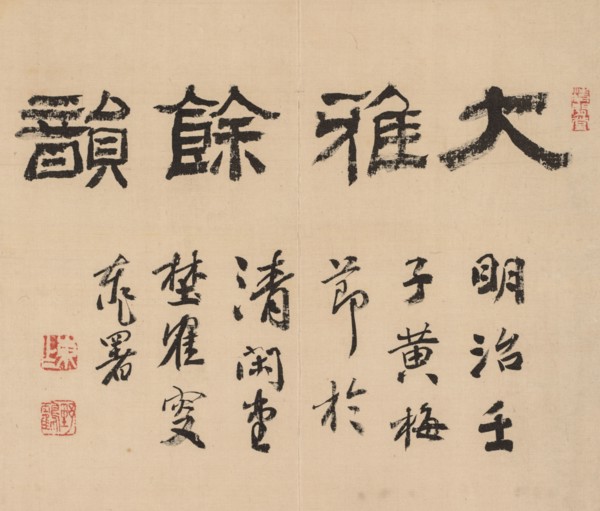 大雅餘韻
明治壬
子黄梅
節於
清閑堂
埜雀叟
署